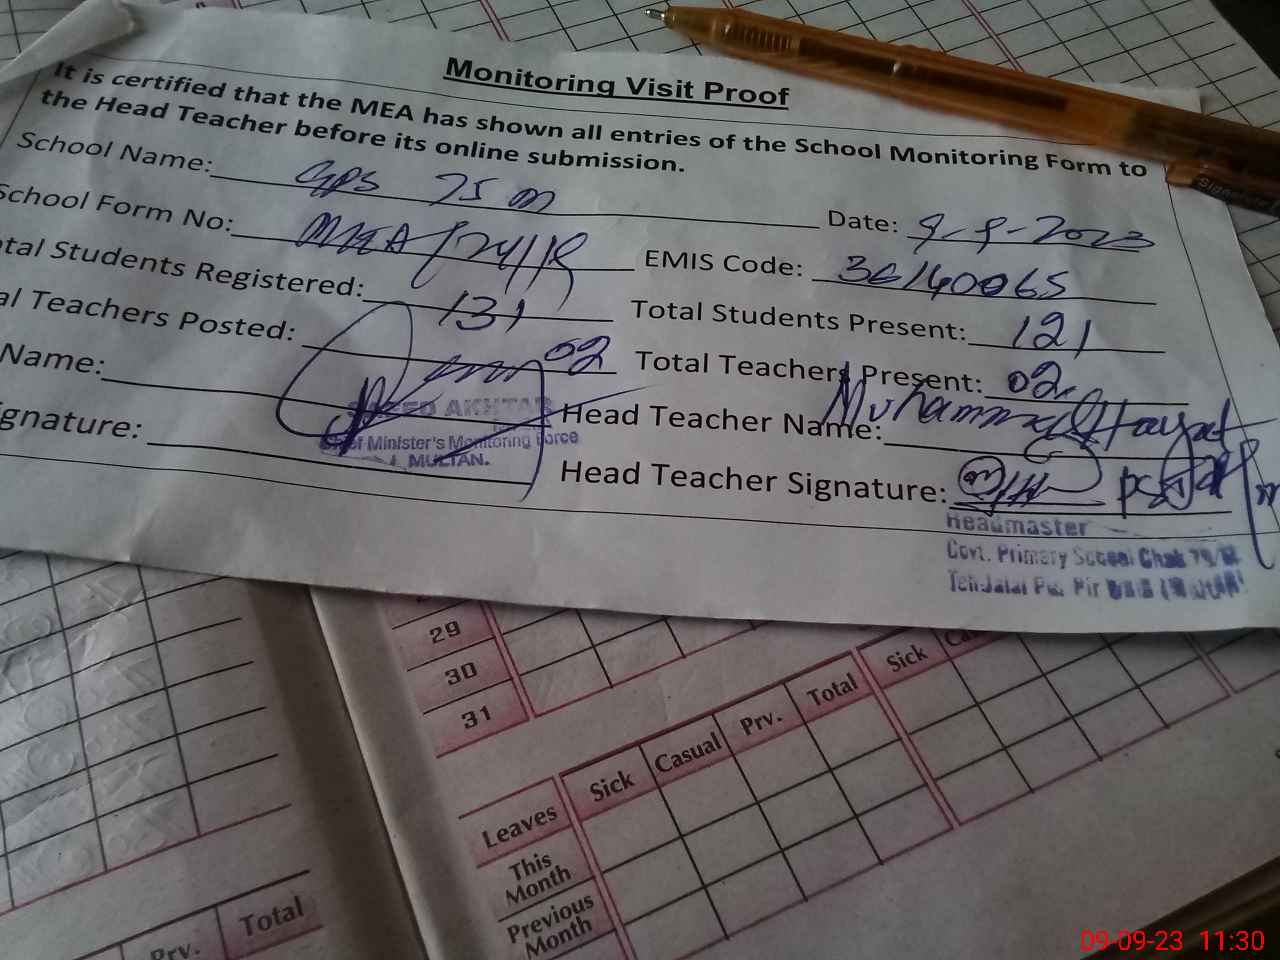 Monitoring Visit Proof
It is certified that the MEA has shown all entries of the School Monitoring Form to
the Head Teacher before its online submission.
School Name: GPS 75 m Date: 9-9-2023
School Form No: MEA EMIS Code: 36140065
Total Students Registered: 131 Total Students Present: 121
al Teachers Posted: 02 Total Teachers Present: 02
Name: Head Teacher Name: Muhammad Hayat
ignature: Head Teacher Signature:
SAEED AKHTAR
Chief Minister's Monitoring Force
MULTAN.
Headmaster
Govt. Primary School Chak
29
30
31
Leaves Sick Casual Prv. Total Sick
This
Month
Previous
Month
Prv. Total
09-09-23 11:30